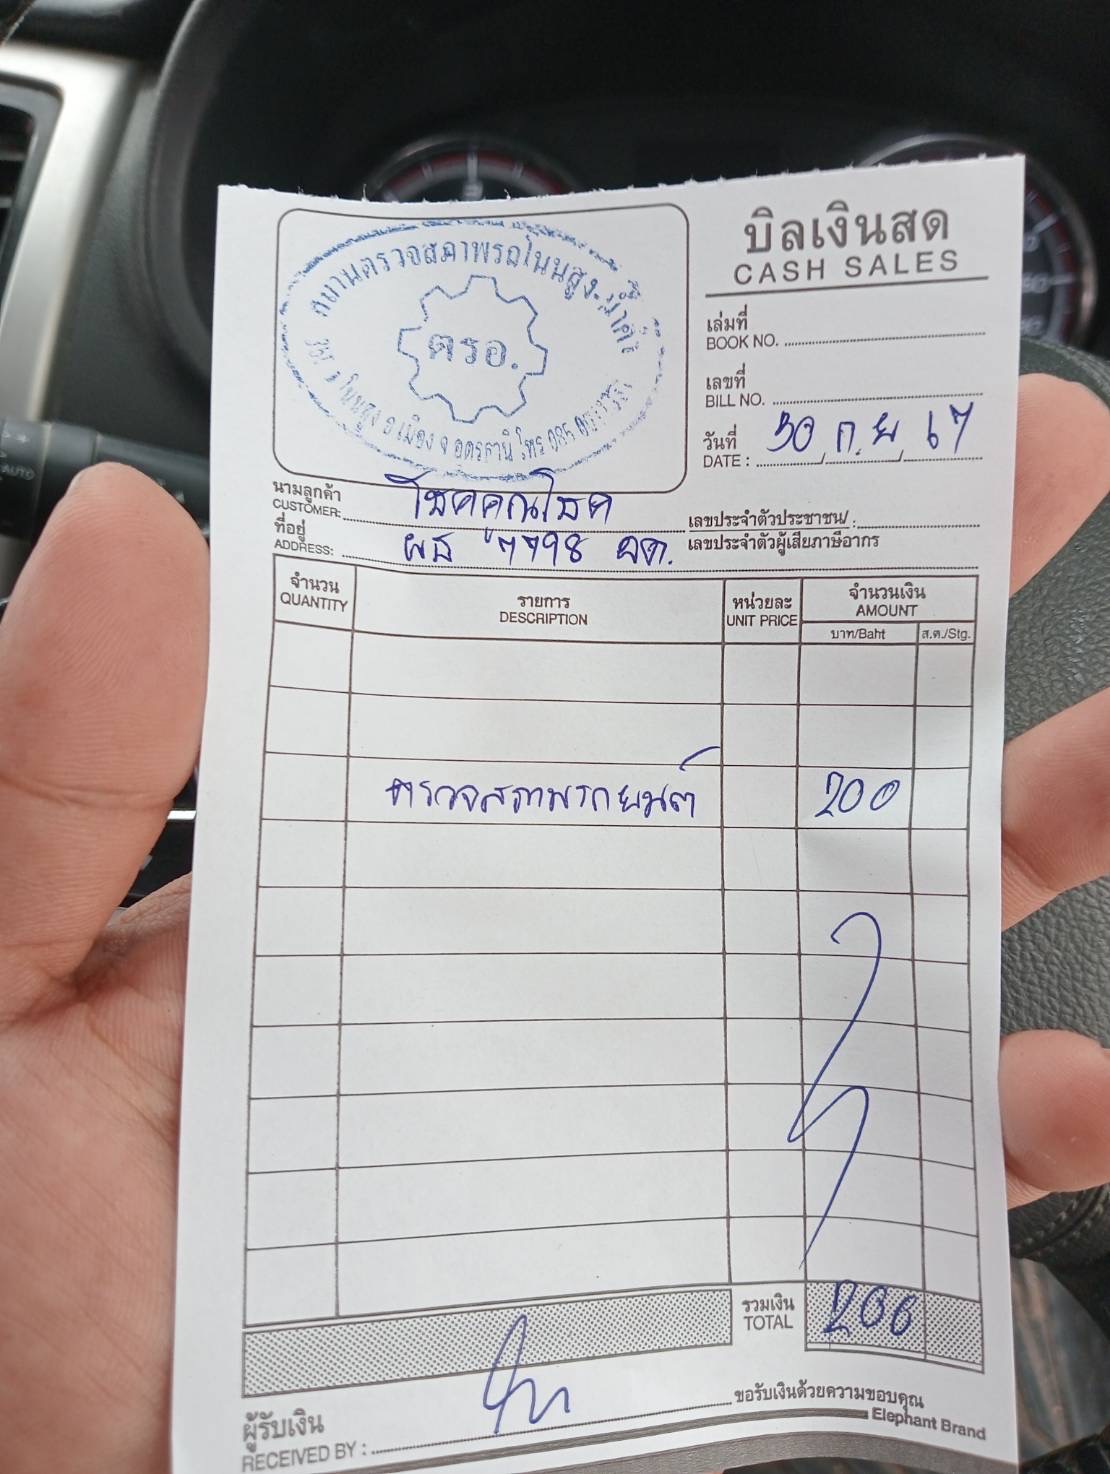 สถานตรวจสภาพรถโนนสูง-น้ำคำ
ตรอ.
ต.โนนสูง อ.เมือง จ.อุดรธานี โทร
บิลเงินสด
CASH SALES
เล่มที่
BOOK NO.
เลขที่
BILL NO.
วันที่ 30 ก.ย 67
DATE :
นามลูกค้า โชคคูณโชค
CUSTOMER:
เลขประจำตัวประชาชน/ :
เลขประจำตัวผู้เสียภาษีอากร
ที่อยู่ ผธ 7798 อด.
ADDRESS:
จำนวน รายการ หน่วยละ จำนวนเงิน
QUANTITY DESCRIPTION UNIT PRICE AMOUNT
บาท/Baht ส.ต./Stg.
ตรวจสภาพรถยนต์ 200
รวมเงิน 200
TOTAL
ขอรับเงินด้วยความขอบคุณ
ผู้รับเงิน
RECEIVED BY :
Elephant Brand